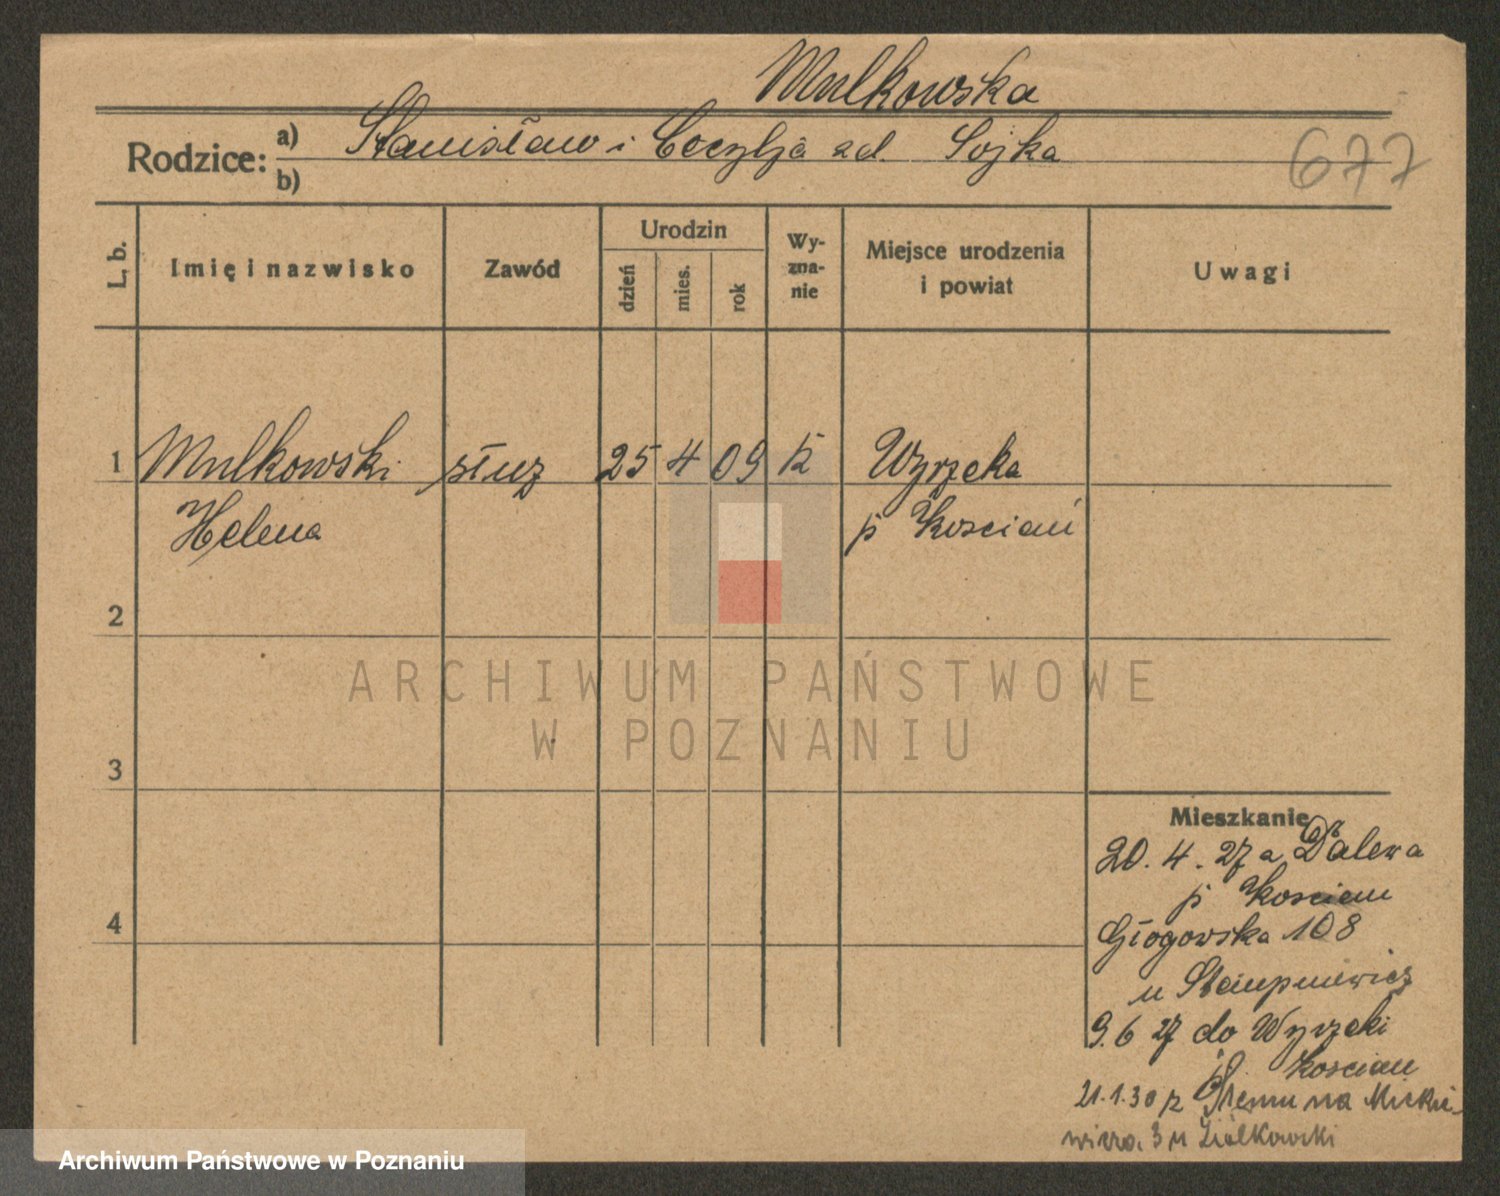 Mulkowska
Rodzice: a) Stanisław i Cecylja zd. Sojka
b)
677
L. b.
Imię i nazwisko
Zawód
Urodzin
dzień
mies.
rok
Wy-
zna-
nie
Miejsce urodzenia
i powiat
Uwagi
1 Mulkowski służ 25 4 09 k Wyrzeka
Helena p Kościań
2
ARCHIWUM PAŃSTWOWE
W POZNANIU
3
Mieszkanie
20. 4. 27 z Dalewa
p Koscian
4
Głogowska 108
u Stempniewicz
9. 6 27 do Wyrzeki
p. Koscian
21.1.30 z Śremu na Mickie-
wicza. 3 u Ziółkowski
Archiwum Państwowe w Poznaniu